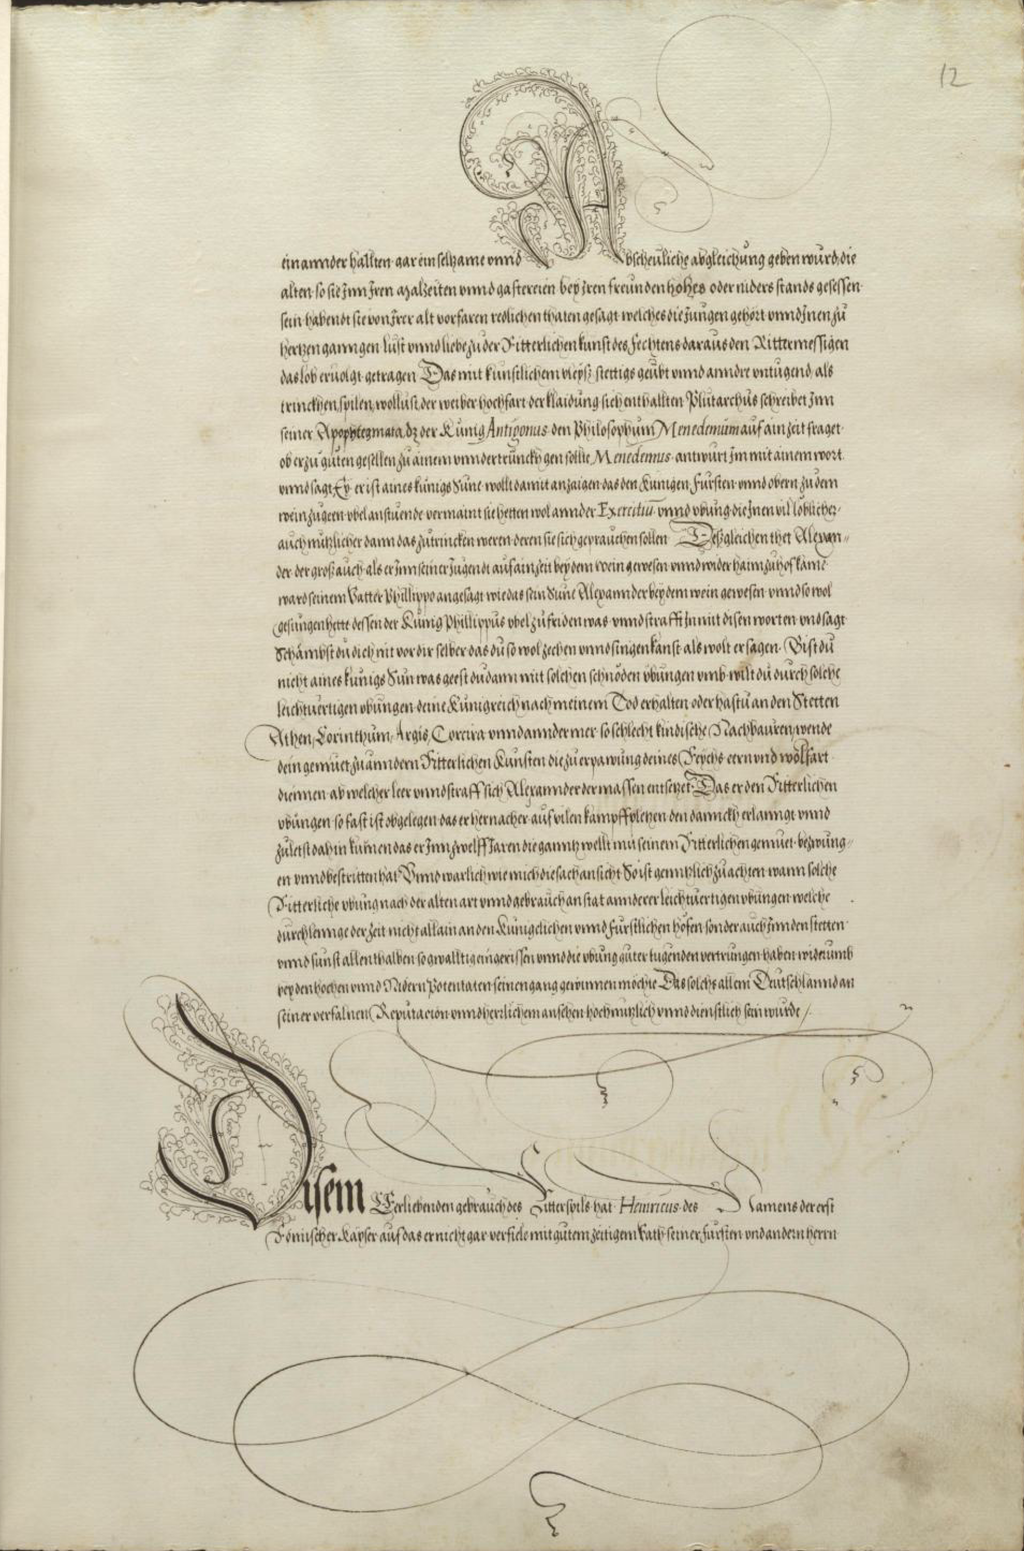 12
einannder hallten gar ein seltzame vnnd Abscheuliche abgleichung geben wurd, die
alten so sie Inn Iren Malzeiten vnnd gastereien bey Iren freunden hohes oder niders stands gesessen
sein habendt sie von Irer alt vorfaren redlichen thaten gesagt welches die Jungen gehört vnnd Inen zu
hertzen ganngen lust vnnd liebe zu der Ritterlichen kunst des fechtens daraus den Rittermessigen
das lob eruolgt getragen Das mit kunstlichem vleyss stettigs geübt vnnd anndre vntugend, als
trinckhen, spilen, wollust, der weiber hochfart der klaidung sich enthallten Plutarchus schreibet Inn
seiner Apophtegmata, dz der Kunig Antigonus den Philosophum Menedemum auf ain zeit fraget
ob er zu guten gesellen zu ainem vnndertrunckh gen sollte Menedemus antwurt Im mit ainem wort
vnnd sagt Ey er ist aines kunigs Sune wollt damit anzaigen das den Kunigen Fursten vnnd obern zu dem
wein zugeen vbel anstuende vermaint sie hetten wol annder Exercitiu vnnd vbung die Inen vil loblicher
auch nutzlicher dann das zutrincken weren deren sie sich geprauchen sollen Dessgleichen thet Alexan=
der der gross auch als er Inn seiner Jugendt auf ain zeit bey dem wein gewesen vnnd wider haim zu hof kame
ward seinem Vatter Phillippo angesagt wie das sein Sune Alexannder bey dem wein gewesen vnnd so wol
gesungen hette dessen der Kunig Phillippus vbel zufriden was vnnd strafft In mit disen worten vnd sagt
Schambst du dich nit vor dir selber das du so wol zechen vnnd singen kanst als wolt er sagen Bist du
nicht aines kunigs Sun was geest du dann mit solchen schnöden vbungen vmb wilt du durch solche
leichtuertigen vbungen deine Kunigreich nach meinem Tod erhalten oder hastu an den Stetten
Athen, Corinthum, Argis, Corcira vnnd annder mer so schlecht kindische Nachbauren, wende
dein gemuet zu anndern Ritterlichen Kunsten die zu erpawung deines Reychs eern vnd wolfart
diennen ab welcher leer vnnd straff sich Alexannder dermassen entsetzet Das er den Ritterlichen
vbungen so fast ist obgelegen das er hernacher auf vilen kampffpletzen den dannckh erlanngt vnnd
zuletst dahin kumen das er Inn zwelff Jaren die ganntz wellt mit seinem Ritterlichen gemuet bezwung=
en vnnd bestritten hat Vnnd warlich wie mich die sach ansicht So ist genntzlich zu achten wann solche
Ritterliche vbung nach der alten art vnnd gebrauch an stat annderer leichtuertigen vbungen welche
durch lennge der zeit nicht allain an den Kunigclichen vnnd Furstlichen höfen sonder auch Inn den stetten
vnnd sunst allenthalben so gwalltig eingerissen vnnd die vbung guter tugenden vertrungen haben widerumb
bey den hochen vnnd Nidern Potentaten seinen gang gewinnen möchte Das solchs allem Deutschlannd an
seiner verfalnen Reputacion vnnd herrlichem ansehen hochnutzlich vnnd dienstlich sein wurde
Disem Eerliebenden gebrauch des Ritterspils hat Heinricus des Namens der erst
Römischer Kayser auf das er nicht gar verfiele mit gutem zeitigem Rath seiner fursten vnd andern herrn